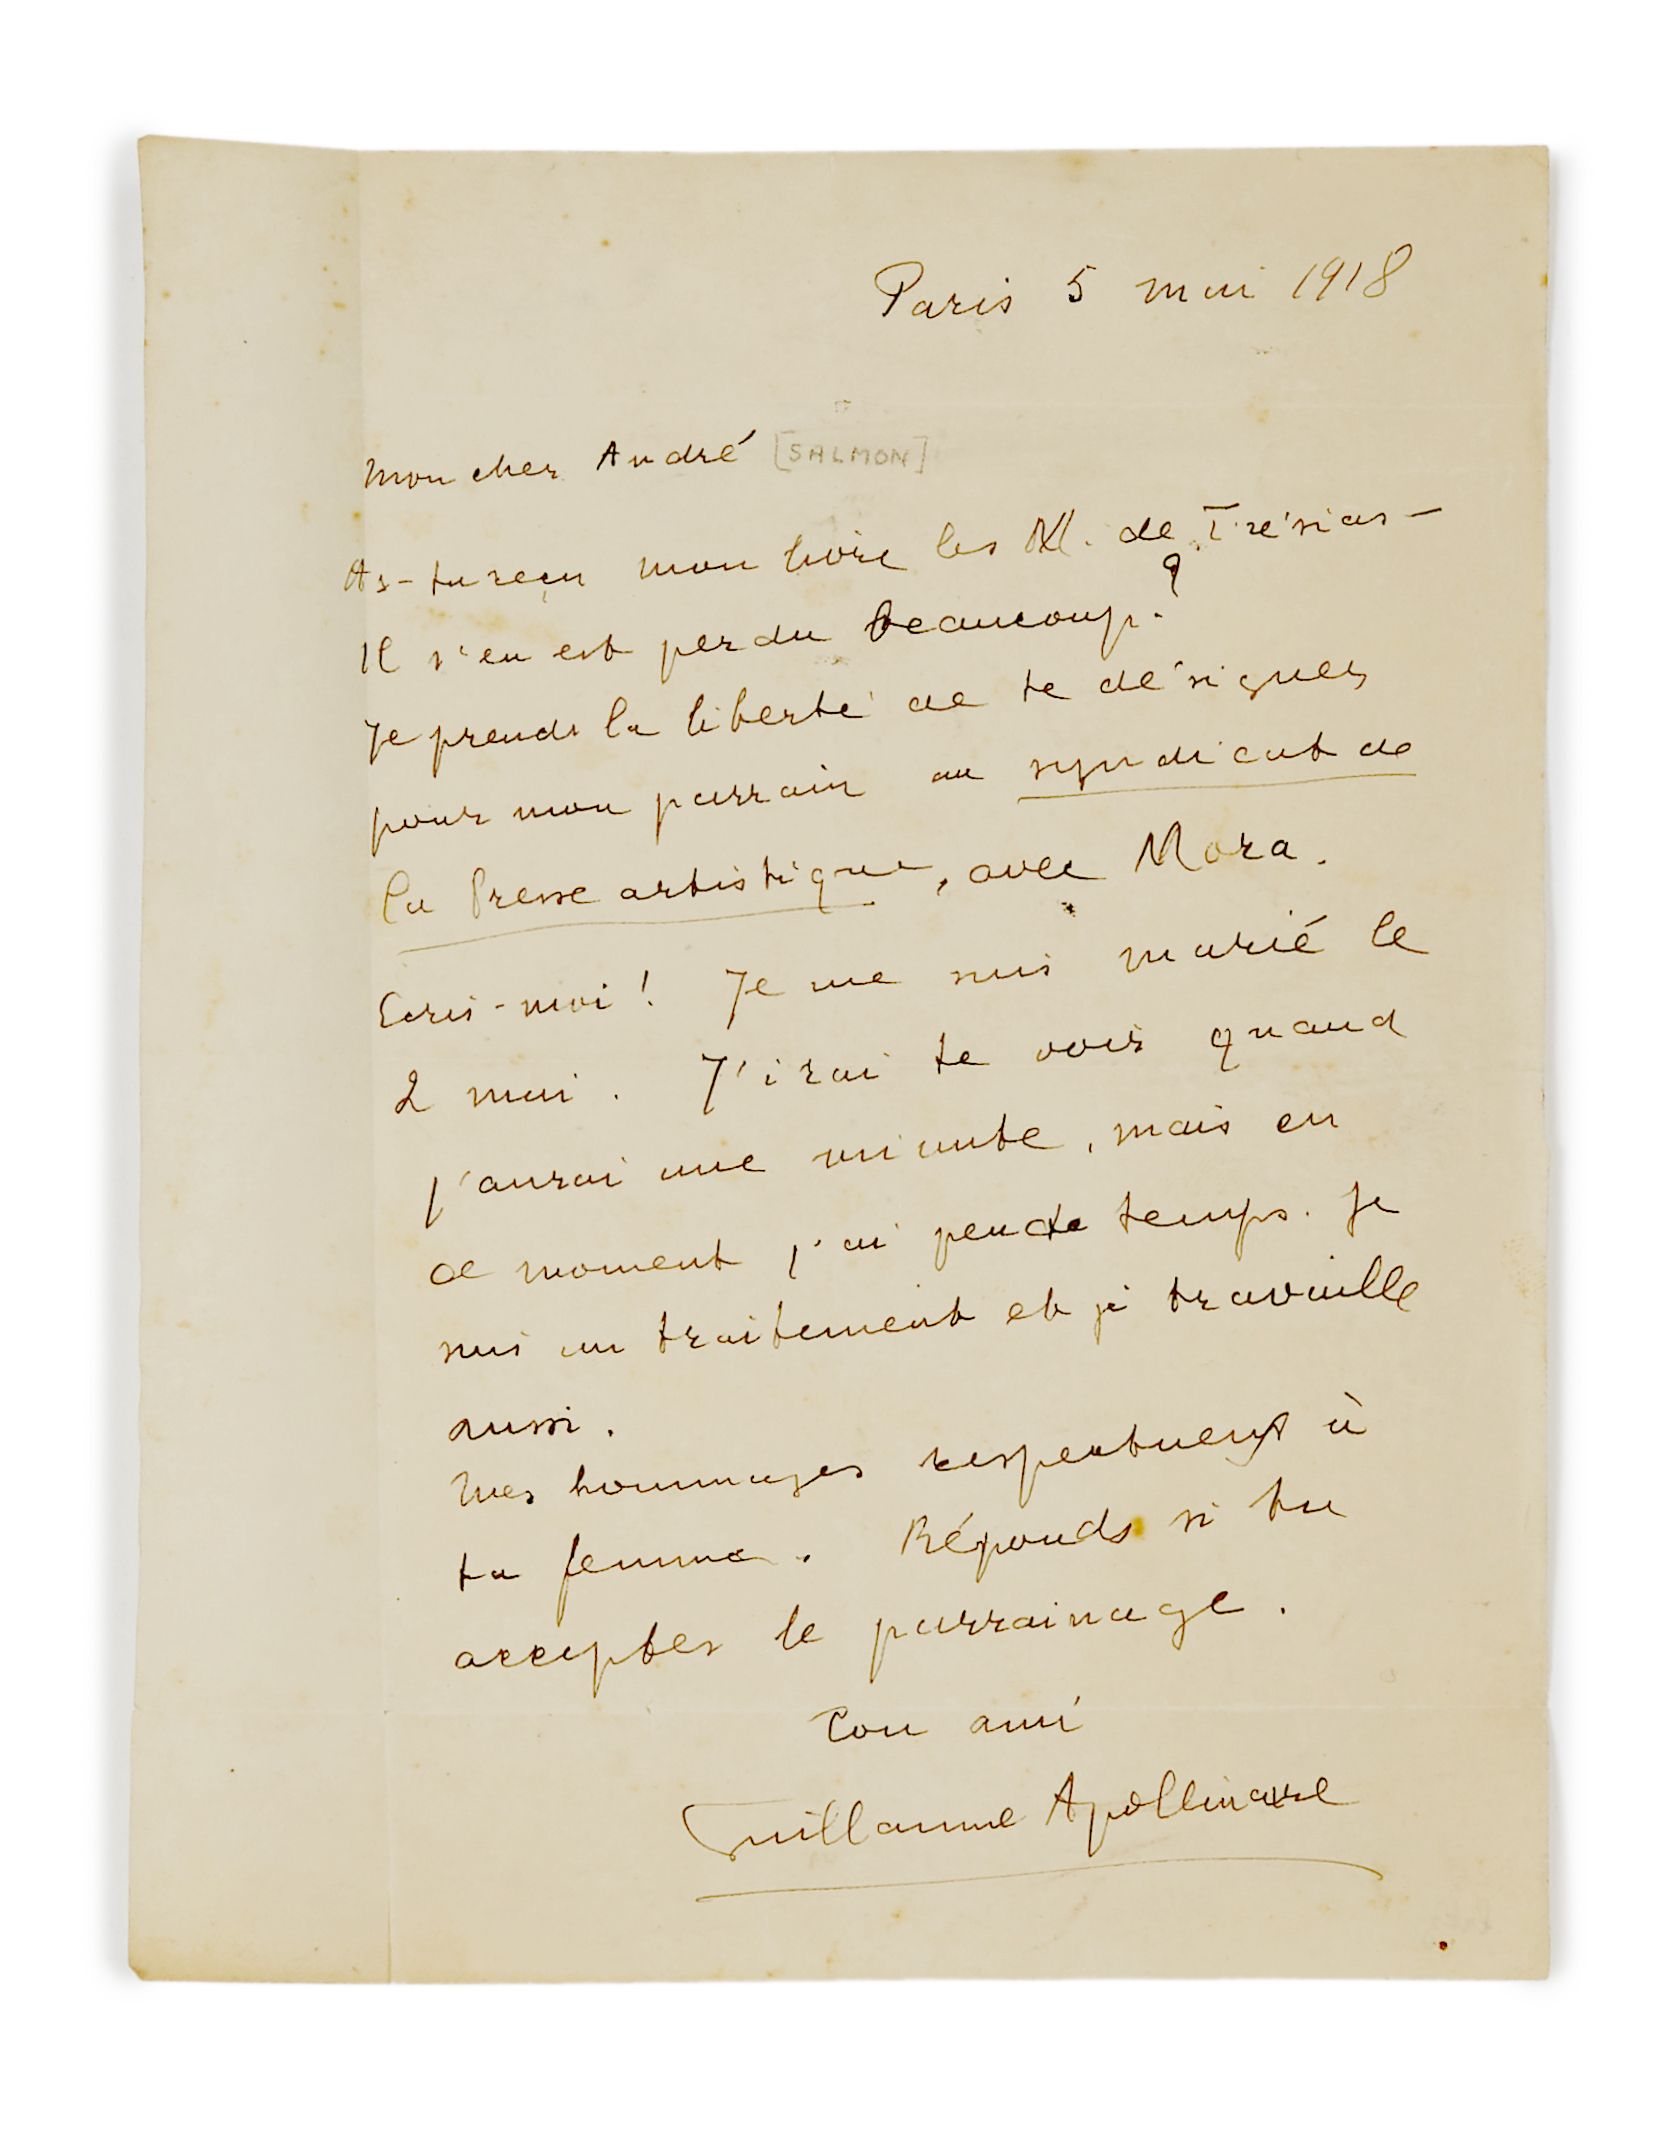 Paris 5 mai 1918
Mon cher André [SALMON]
As-tu reçu mon livre les M. de Tirésias -
?
Il s'en est perdu beaucoup.
Je prends la liberté de te désigner
pour mon parrain au syndicat de
la Presse artistique, avec Mora.
Ecris-moi ! Je me suis marié le
2 mai. J'irai te voir quand
j'aurai une minute, mais en
ce moment j'ai peu de temps. Je
suis en traitement et je travaille
aussi.
Mes hommages respectueux à
ta femme. Réponds si tu
acceptes le parrainage.
Ton ami
Guillaume Apollinaire